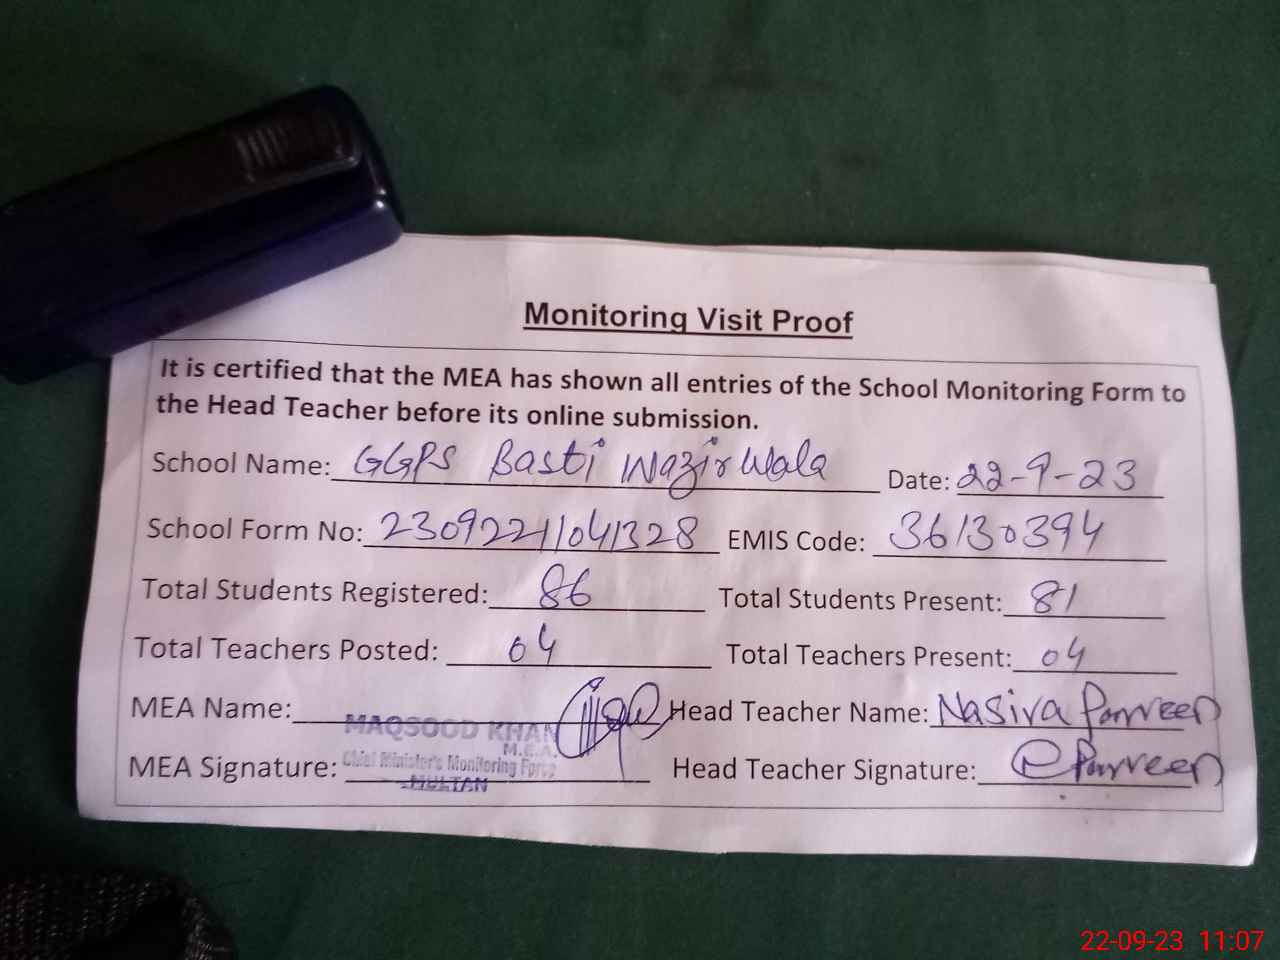 Monitoring Visit Proof
It is certified that the MEA has shown all entries of the School Monitoring Form to
the Head Teacher before its online submission.
School Name: GGPS Basti Wazir Wala Date: 22-9-23
School Form No: 23092211041328 EMIS Code: 36130394
Total Students Registered: 86 Total Students Present: 81
Total Teachers Posted: 04 Total Teachers Present: 04
MEA Name: Head Teacher Name: Nasira Parveen
MAQSOOD KHAN
M.E.A.
Chief Minister's Monitoring Force
MULTAN
MEA Signature: Head Teacher Signature: Parveen
22-09-23 11:07